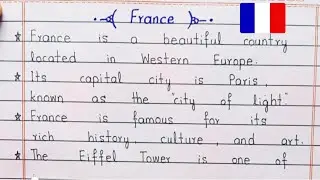 France
* France is a beautiful country
located in Western Europe.
* Its capital city is Paris,
known as the "city of light."
* France is famous for its
rich history, culture, and art.
* The Eiffel Tower is one of